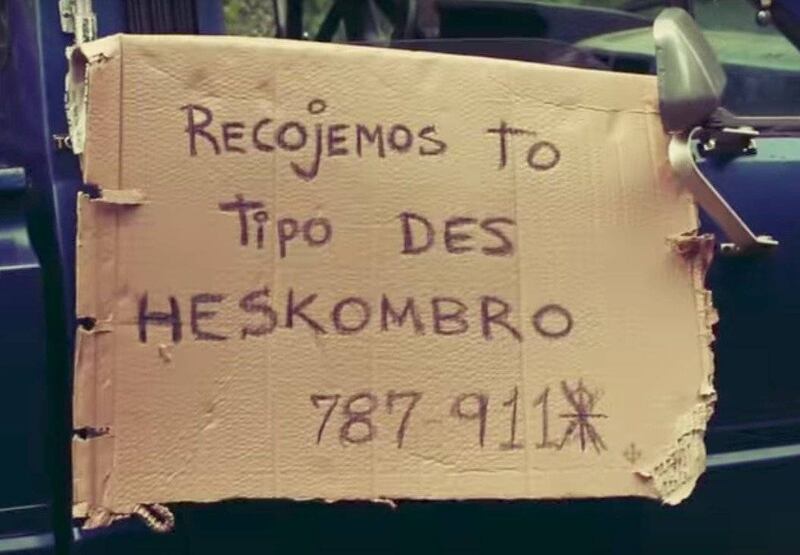 RECOjEMOS TO
TipO DES
HESKOMBRO
787-911*